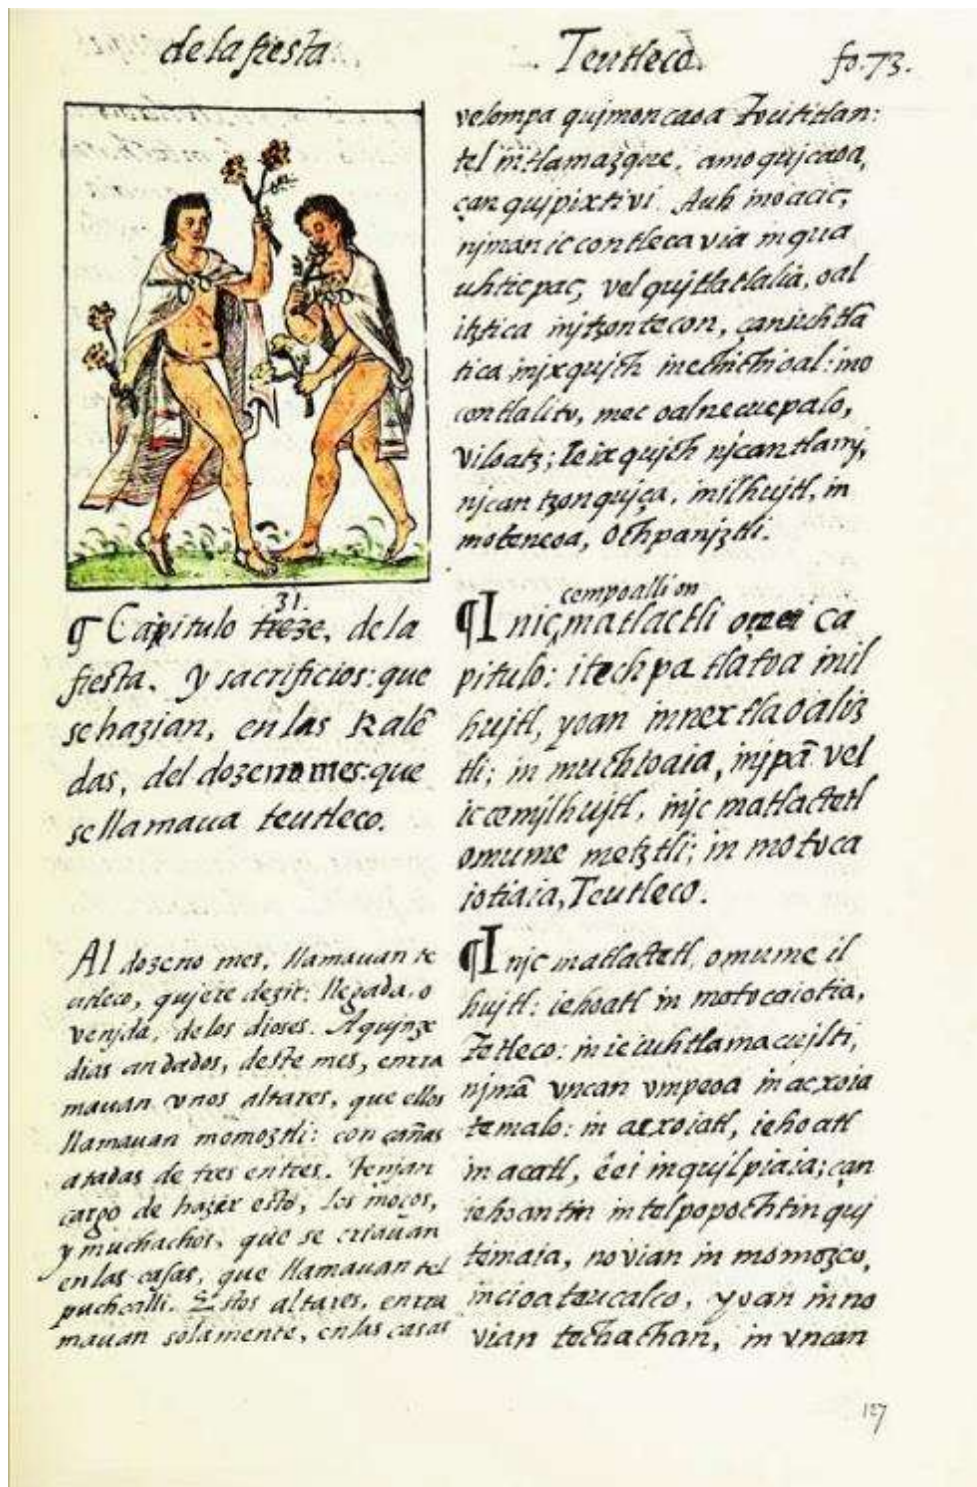 de la fiesta.
Teutleco.
fo. 73.
¶ Capitulo treze, de la
31.
fiesta. y sacrificios: que
se hazian, en las Kalẽ
das, del dozeno mes: que
se llamaua teutleco.
Al dozeno mes, llamauan te
utleco, qujere dezir: llegada, o
venjda, de los dioses. A qujnze
dias andados, deste mes, enrra
mauan vnos altares, que ellos
llamauan momoztli: con cañas
atadas de tres en tres. Tenjan
cargo de hazer esto, los moços,
y muchachos, que se criauan
en las casas, que llamauan tel
puchcalli. Estos altares, enrra
mauan solamente, en las casas
velompa qujmoncaoa
tel in tlamazque, amo qujcaoa,
çan qujpixtivi. Auh in oacic,
njman ic contlecavia in qua
uhticpac, vel qujtlatlalia, oal
itztica injtzontecon, çan iuh tla
tica injxqujch inechichioal: in o
contlalito, mec oalnecuepalo,
viloatz; Ie ixqujch njcan tlamj,
njcan tzonqujça, in ilhujtl, in
moteneoa, Ochpanjztli.
cempoalli on
¶ Injc, matlactli oce ca
pitulo: itechpa tlatoa in il
hujtl, yoan in nextlaoaliz
tli; in muchioaia, injpã vel
ic cemjlhujtl, injc matlactetl
omume metztli; in motoca
iotiaia, Teutleco.
¶ Injc matlactetl, omume il
hujtl: iehoatl in motocaiotia,
Teutleco: in ie iuh tlamacujlti,
njmã vncan vmpeoa in acxoia
temalo: in acxoiatl, iehoatl
in acatl, ẽei in qujlpiaia; çan
iehoantin in telpopochtin quj
temaia, novian in momozco,
in cioateucalco, yoan in no
vian techachan, in vncan
127